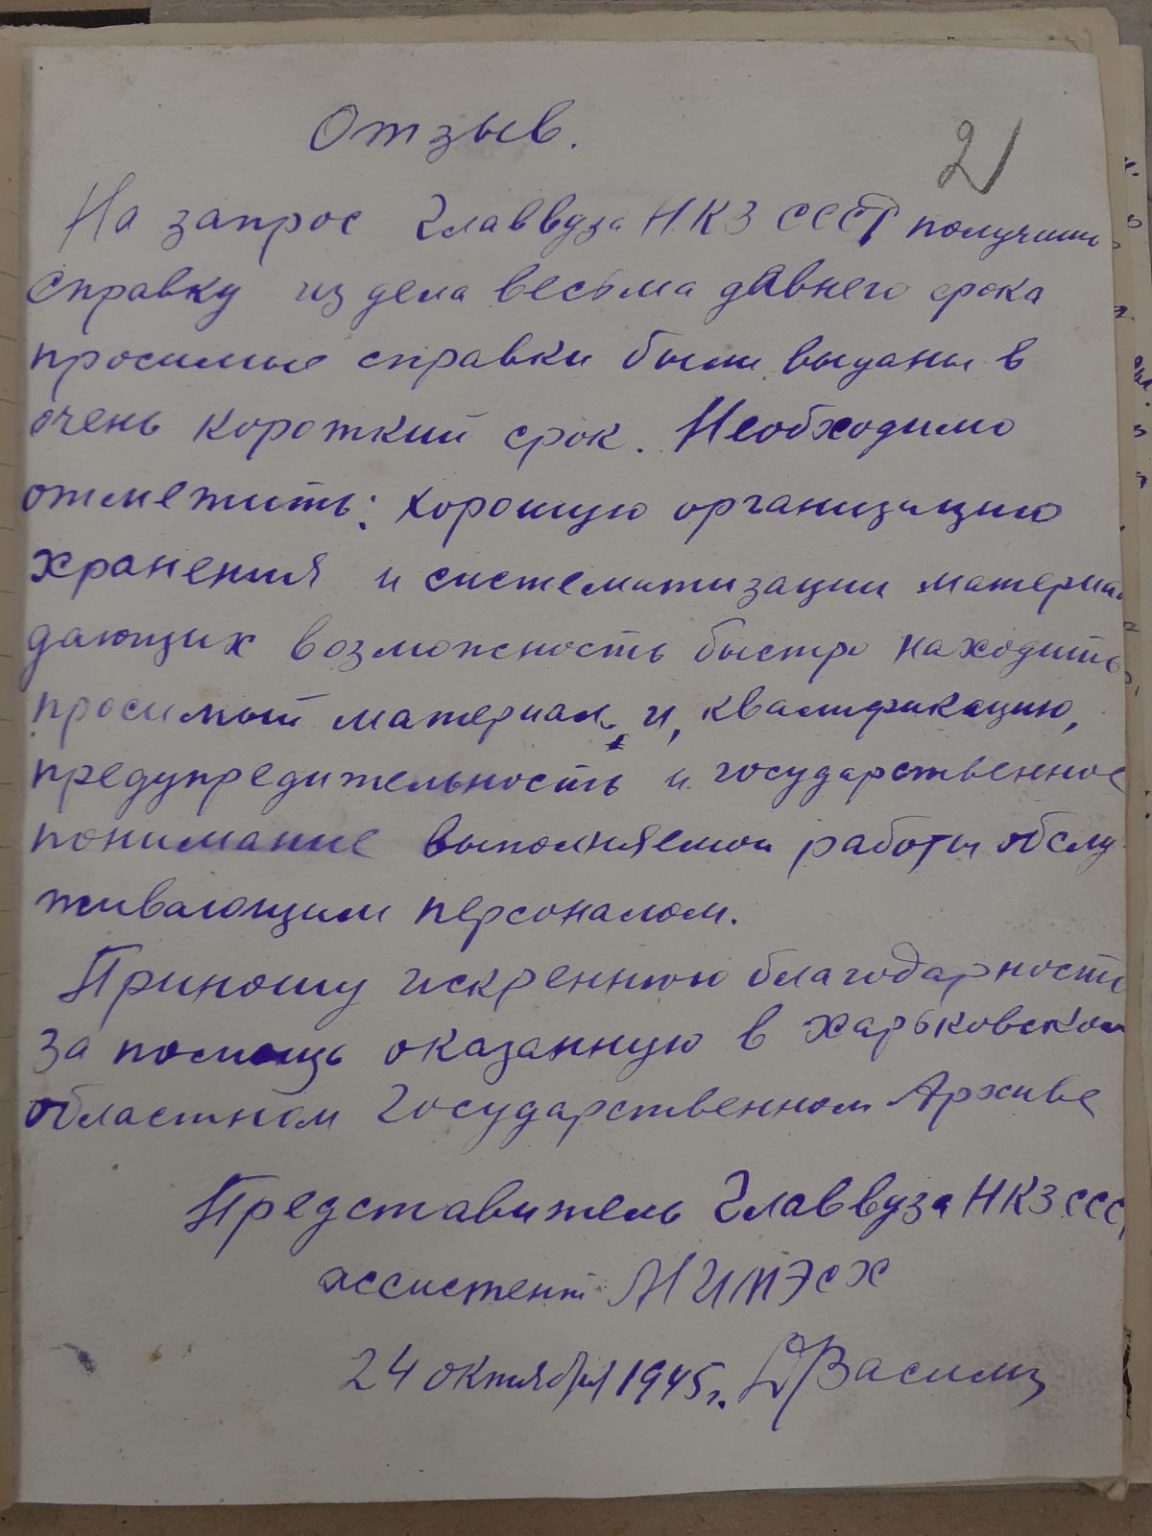 Отзыв.
21
На запрос Главвуза НКЗ СССР получили
справку из дела весьма давнего срока
просимые справки были выданы в
очень короткий срок. Необходимо
отметить: хорошую организацию
хранения и систематизации материа
дающих возможность быстро находить
просимый материал и, квалификацию,
предупредительность и государственное
понимание выполняемой работы обслу-
живающим персоналом.
Приношу искреннюю благодарность
за помощь оказанную в Харьковском
областном Государственном Архиве
Представитель Главвуза НКЗ ССС
ассистент
24 октября 1945 г.